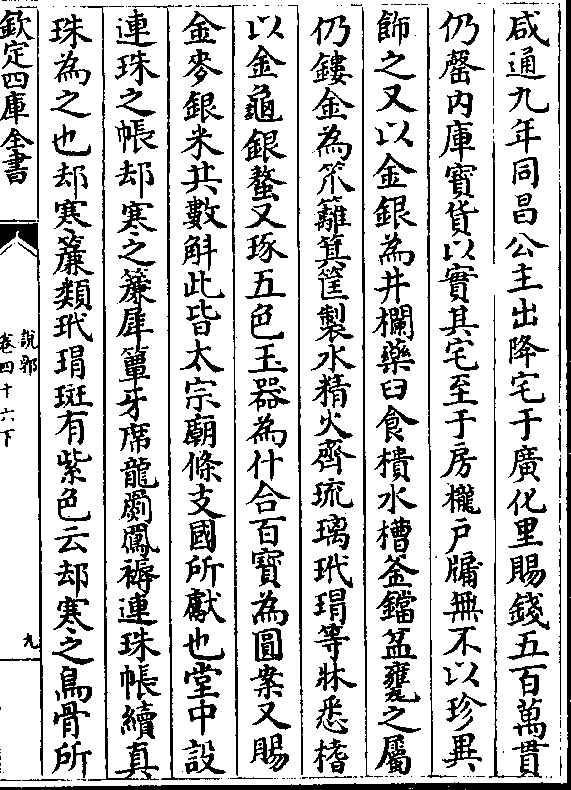 咸通九年同昌公主出降宅于廣化里賜錢五百萬貫
仍罄内庫寳貨以實其宅至于房櫳户牖無不以珍異
飾之又以金銀為井欄藥臼食櫃水槽釜鐺盆甕之屬
仍鏤金為笊籬箕筐製水精火齊琉璃玳瑁等牀悉榰
以金龜銀螯又琢五色玉器為什合百寳為圓案又賜
金麥銀米共數斛此皆太宗廟條支國所獻也堂中設
連珠之帳却寒之簾犀簟牙席龍罽鳳褥連珠帳續真
珠為之也却寒簾類玳瑁斑有紫色云却寒之鳥骨所
欽定四庫全書
說郛
卷四十六下
九